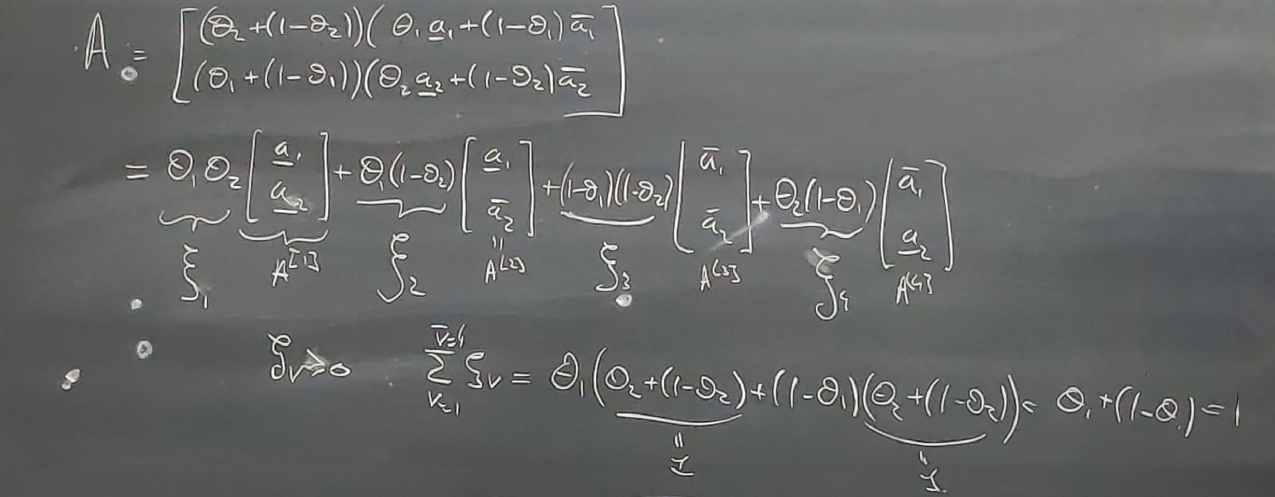 A = [ (θ₂+(1-θ₂))(θ₁a̲₁+(1-θ₁)a̅₁
(θ₁+(1-θ₁))(θ₂a̲₂+(1-θ₂)a̅₂ ]
= θ₁θ₂ [a̲₁ a̲₂] + θ₁(1-θ₂) [a̲₁ a̅₂] + (1-θ₁)(1-θ₂) [a̅₁ a̅₂] + θ₂(1-θ₁) [a̅₁ a̲₂]
ξ₁ A^[1] ξ₂ " A^[2] ξ₃ A^[3] ξ₄ A^[4]
ξᵥ≥0 ∑_{v=1}^{v̅=4} ξᵥ = θ₁(θ₂+(1-θ₂)+(1-θ₁)(θ₂+(1-θ₂))= θ₁+(1-θ₁)=1
" 1 " 1